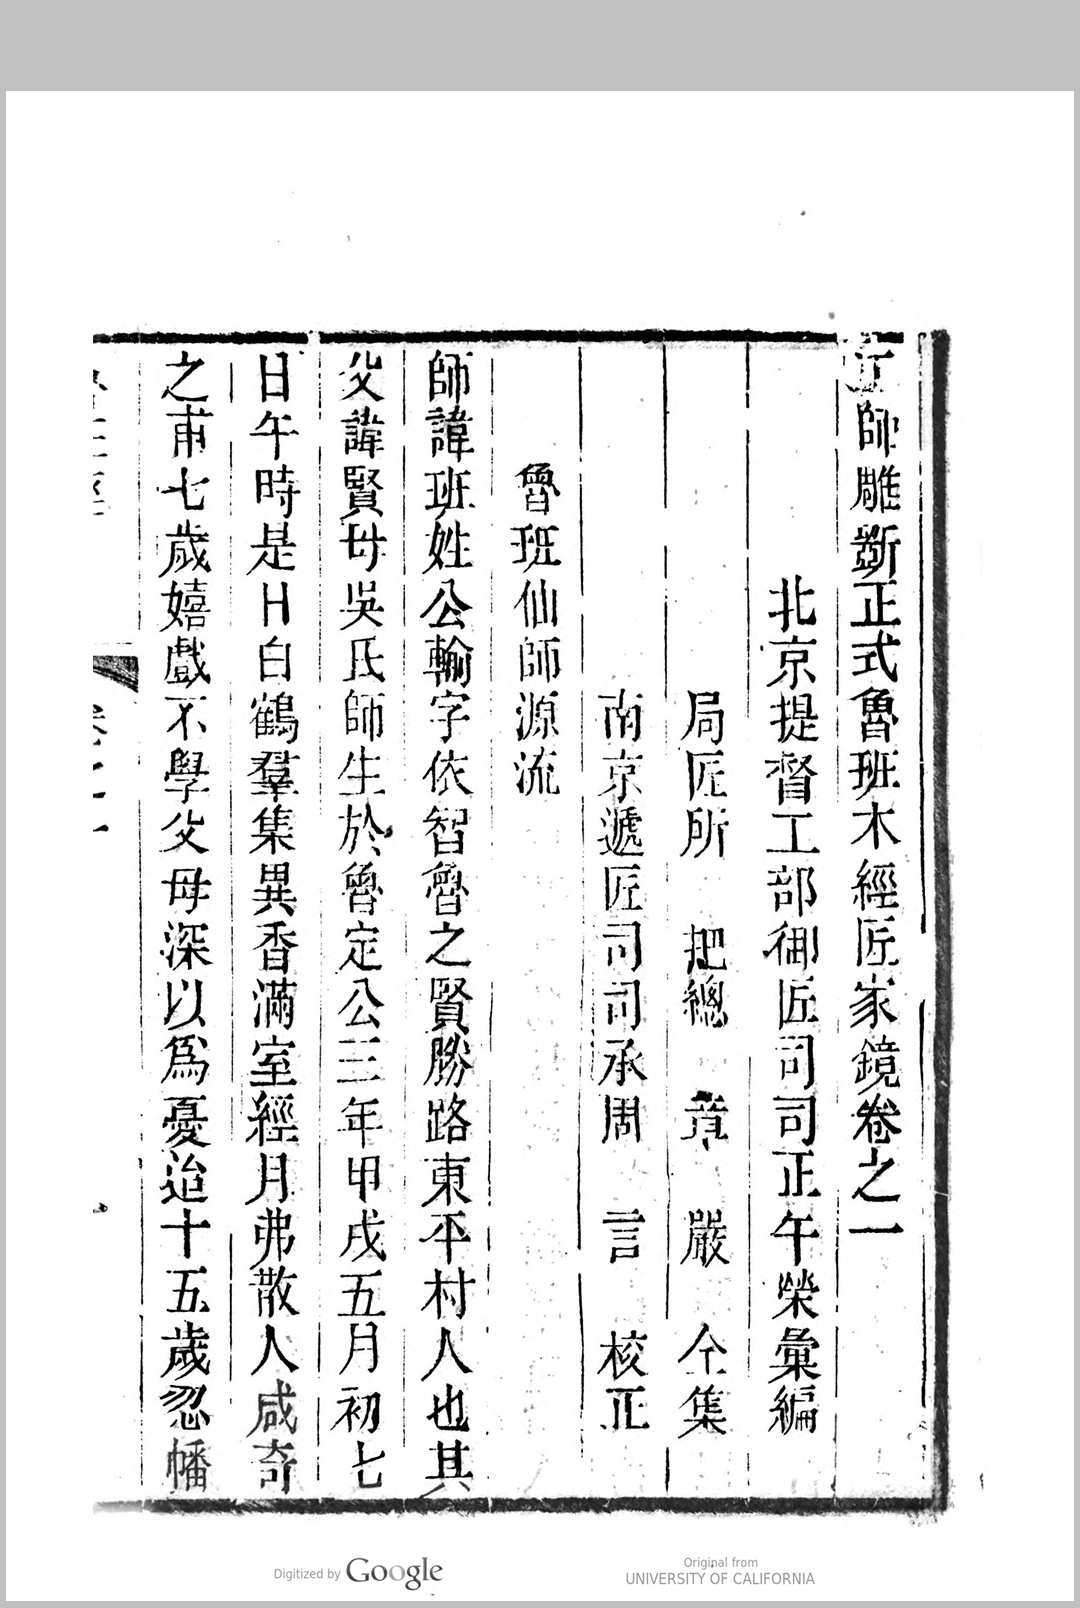 師雕斵正式魯班木經匠家鏡卷之一
北京提督工部御匠司司正午榮彙編
局匠所 把總 章 嚴 仝集
南京遞匠司司承周 言 校正
魯班仙師源流
師諱班姓公輸字依智魯之賢勝路東平村人也其
父諱賢母吳氏師生於魯定公三年甲戌五月初七
日午時是日白鶴羣集異香滿室經月弗散人咸奇
之甫七歲嬉戲不學父母深以爲憂迨十五歲忽幡
卷之一
Digitized by Google
Original from
UNIVERSITY OF CALIFORNIA